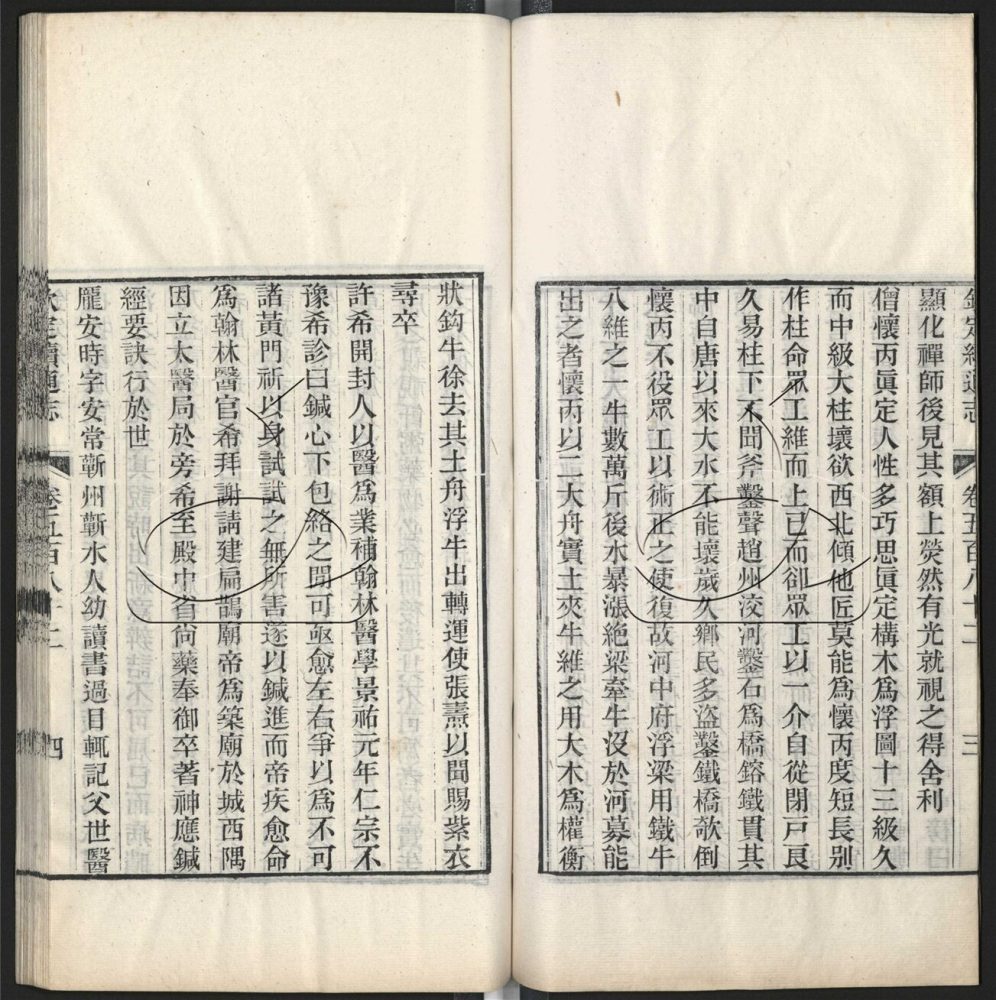 欽定續通志 卷五百八十二 三
顯化禪師後見其額上熒然有光就視之得舍利
僧懷丙眞定人性多巧思眞定構木爲浮圖十三級久
而中級大柱壞欲西北傾他匠莫能爲懷丙度短長別
作柱命眾工維而上已而卻眾工以一介自從閉戸良
久易柱下不聞斧鑿聲趙州洨河鑿石爲橋鎔鐵貫其
中自唐以來大水不能壞歲久鄉民多盜鑿鐵橋欹倒
懷丙不役眾工以術正之使復故河中府浮梁用鐵牛
八維之一牛數萬斤後水暴漲絶梁牽牛沒於河募能
出之者懷丙以二大舟實土夾牛維之用大木爲權衡
狀鉤牛徐去其土舟浮牛出轉運使張燾以聞賜紫衣
尋卒
許希開封人以醫爲業補翰林醫學景祐元年仁宗不
豫希診曰鍼心下包絡之閒可亟愈左右爭以爲不可
諸黃門祈以身試試之無所害遂以鍼進而帝疾愈命
爲翰林醫官希拜謝請建扁鵲廟帝爲築廟於城西隅
因立太醫局於旁希至殿中省尚藥奉御卒著神應鍼
經要訣行於世
龐安時字安常蘄州蘄水人幼讀書過目輒記父世醫
欽定續通志 卷五百八十二 四